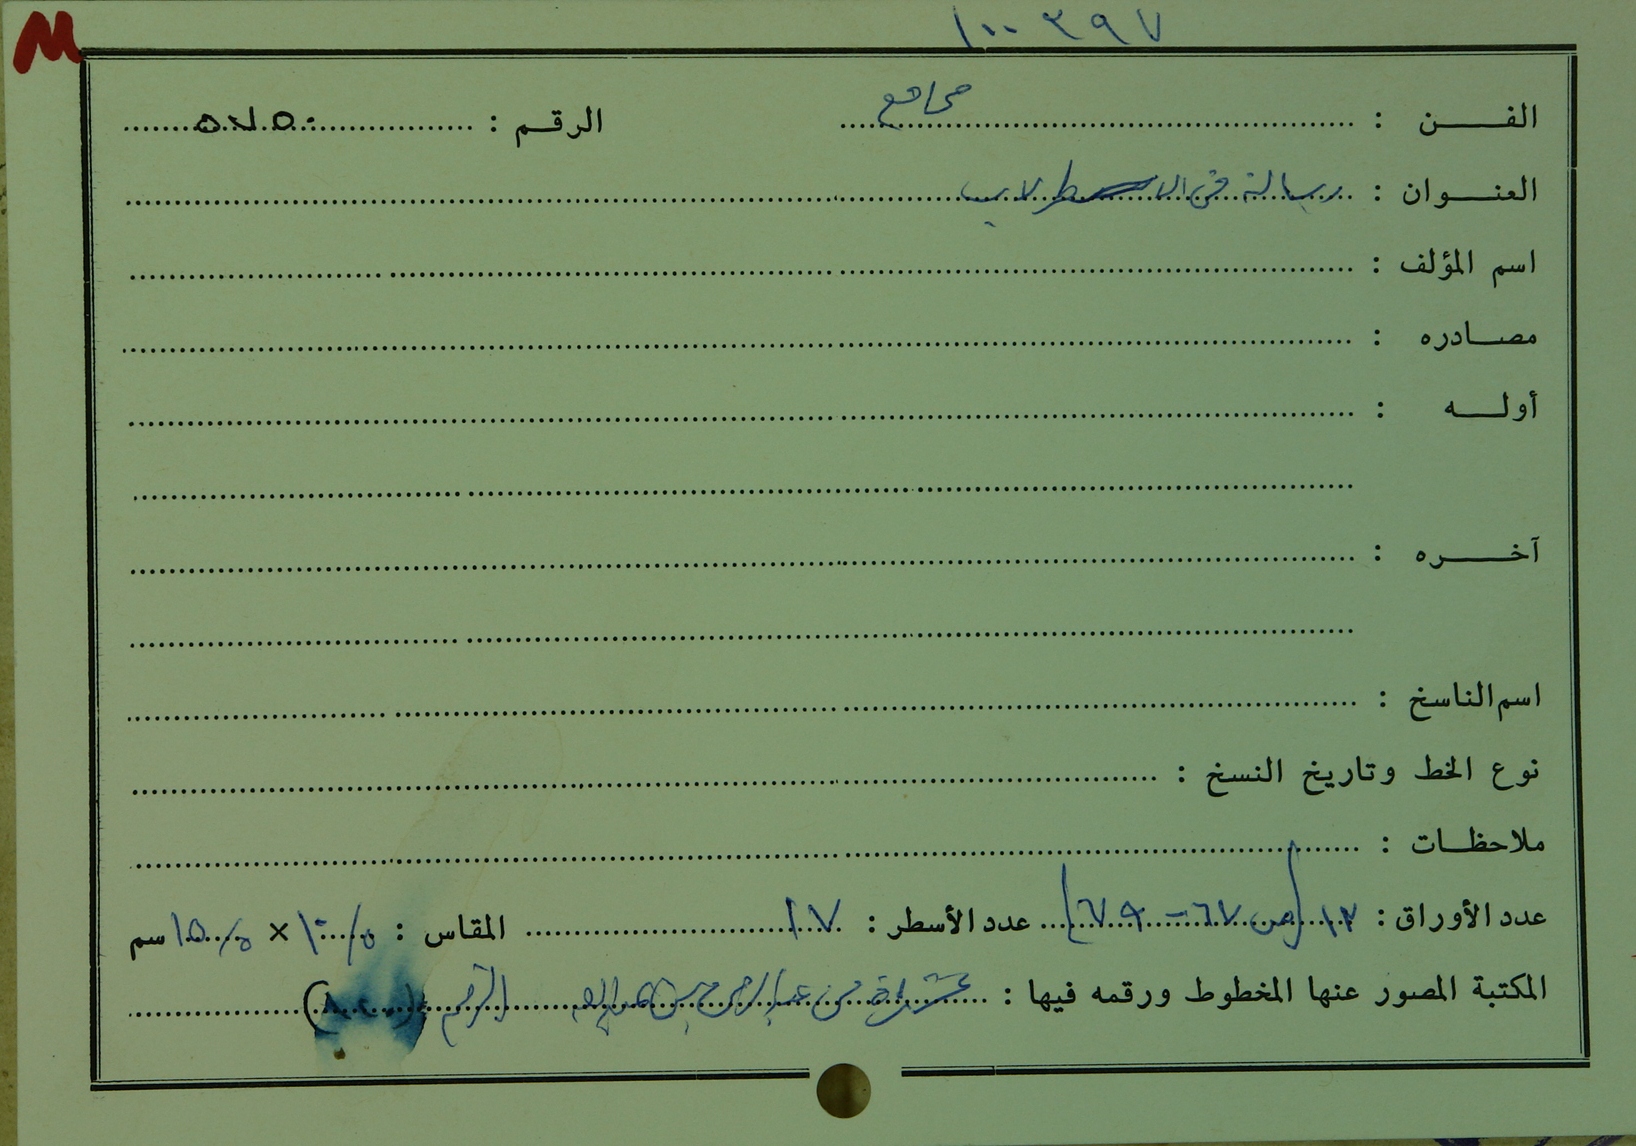 ١٠٠٣٩٧
M
الفن : مجاميع الرقم :
العنوان : رسالة في الاسطرلاب
اسم المؤلف :
مصادره :
أوله :
آخره :
اسم الناسخ :
نوع الخط وتاريخ النسخ :
ملاحظات :
عدد الأوراق : ١٢ (من ٦٧ - ٧٩) عدد الأسطر : ١٧ المقاس : ١٠/٥ × ١٥/٥ سم
المكتبة المصور عنها المخطوط ورقمه فيها : من عبدالرحمن الرقم